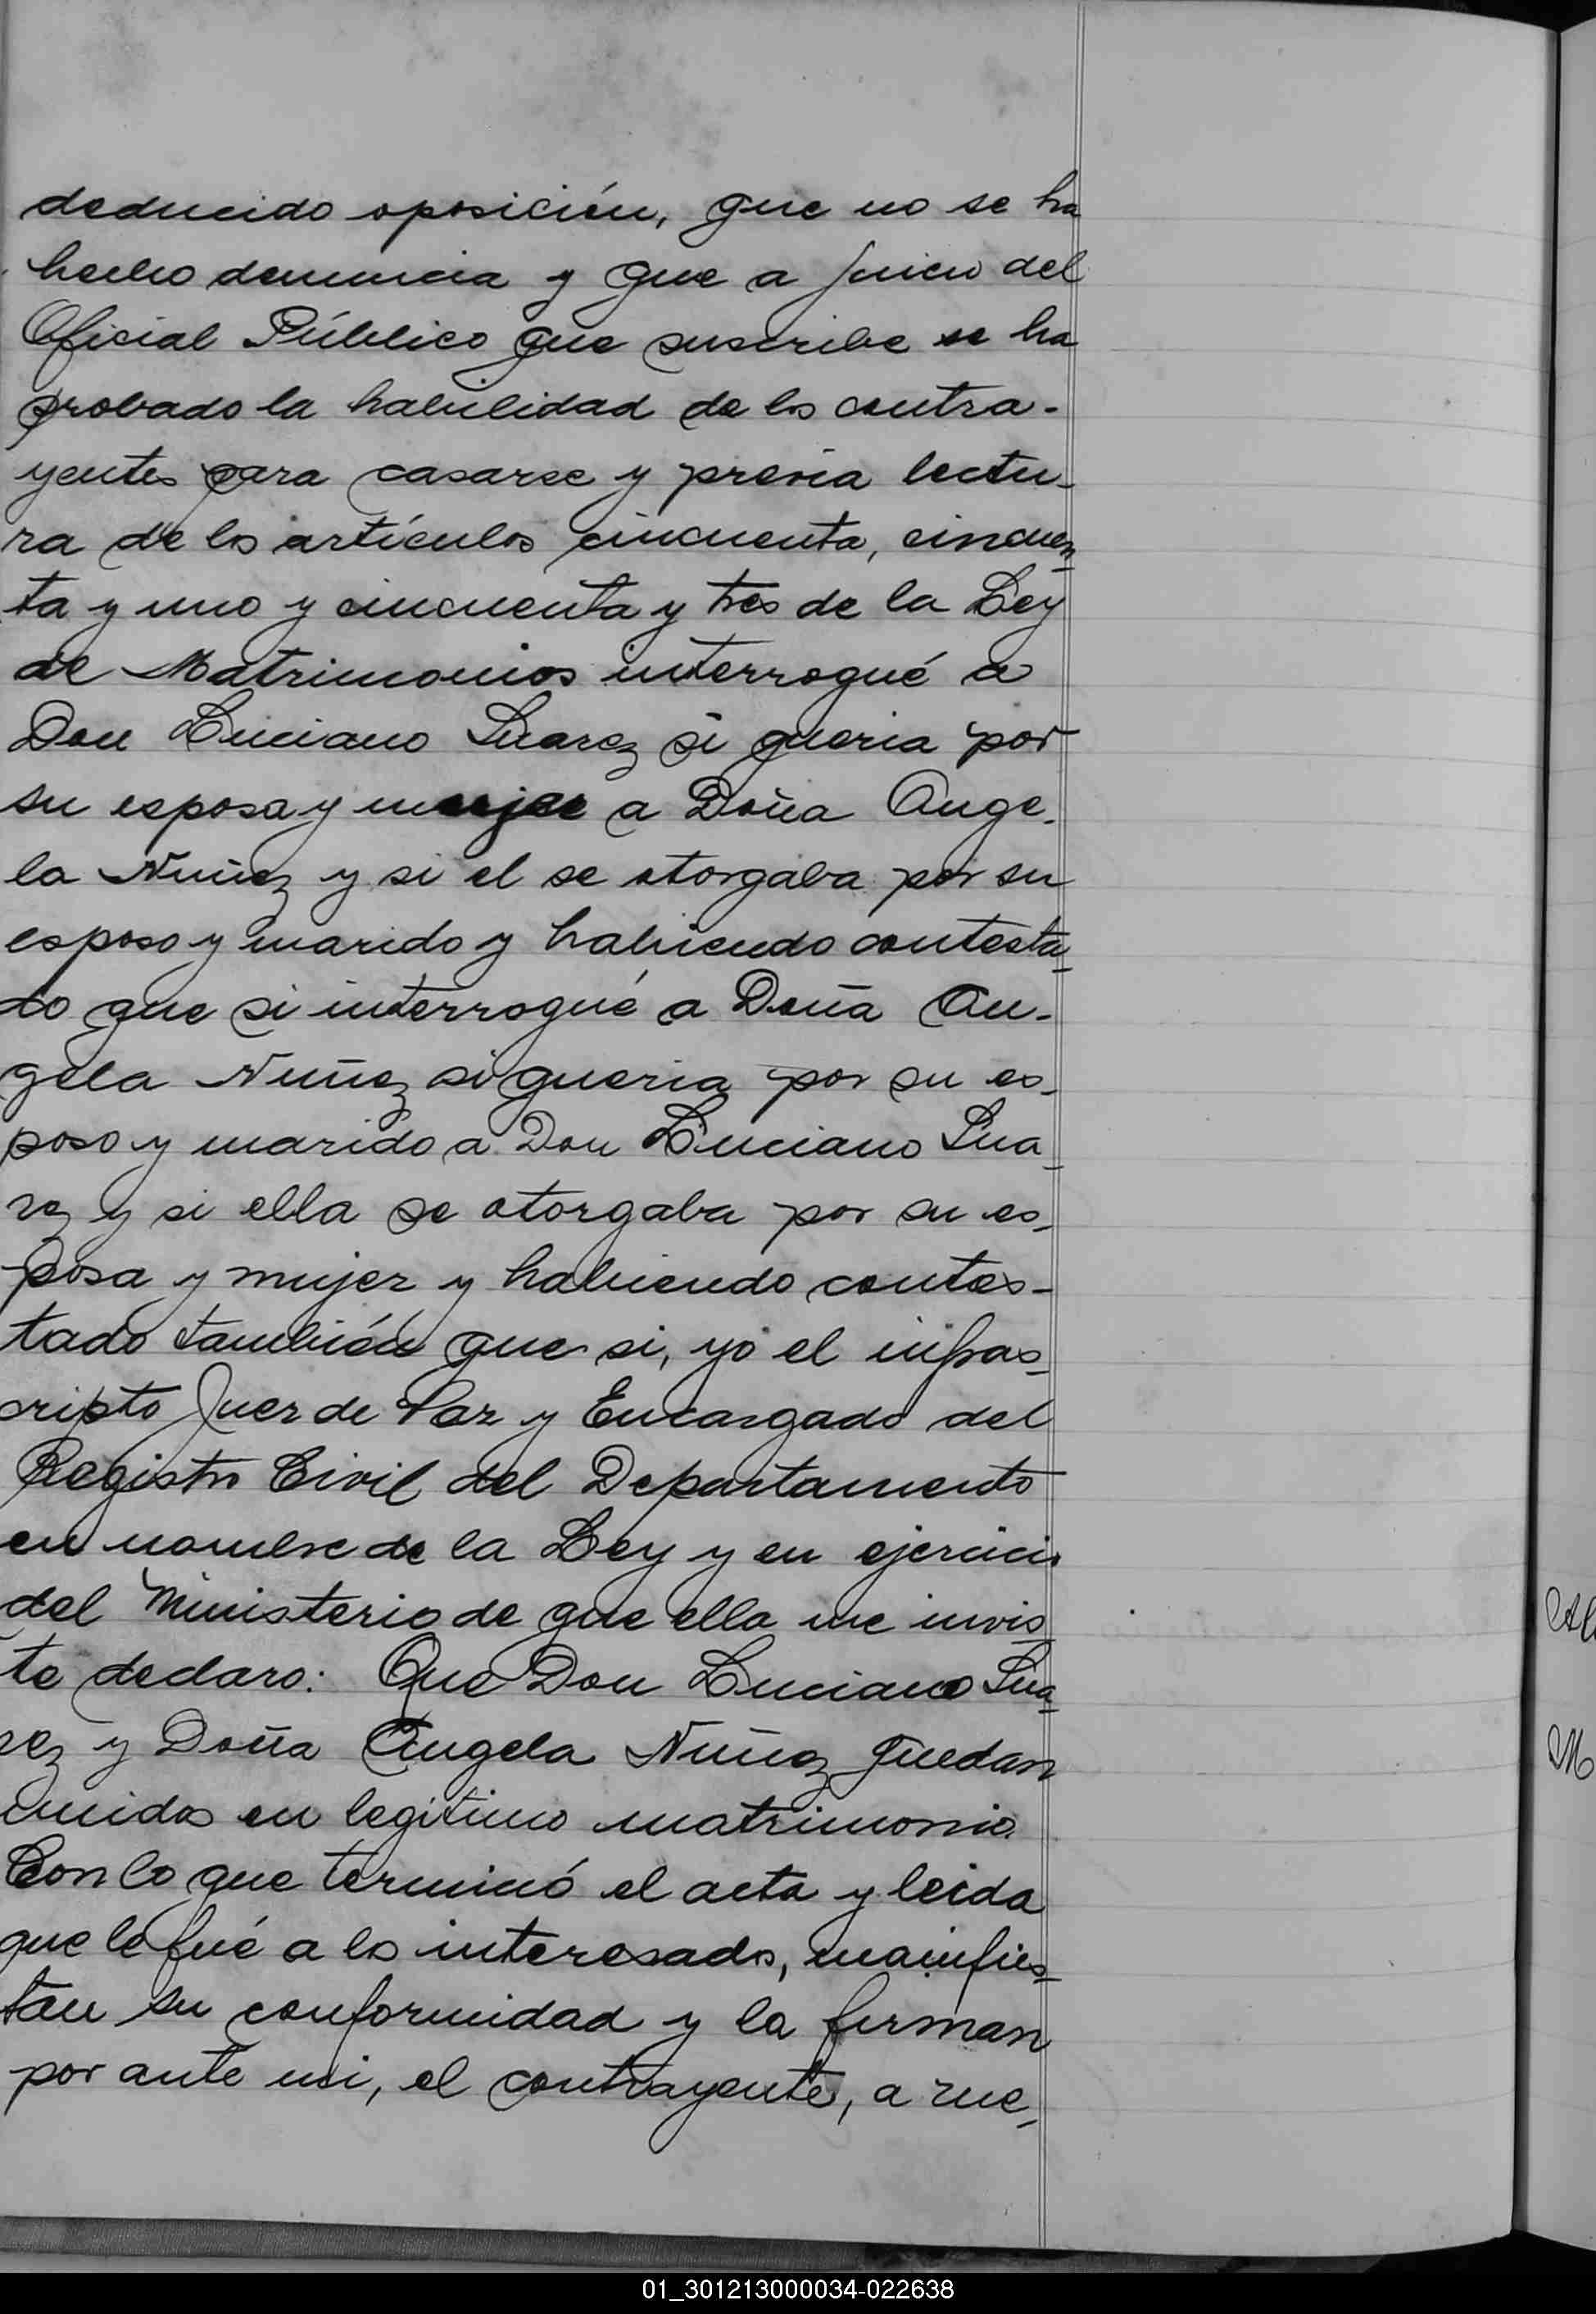 deducido oposición, que no se ha
hecho denuncia y que a juicio del
Oficial Público que suscribe se ha
probado la habilidad de los contra-
yentes para casarse y previa lectu-
ra de los artículos cincuenta, cincuen-
ta y uno y cincuenta y tres de la Ley
de Matrimonios interrogué a
Don Luciano Suarez si queria por
su esposa y mujer a Doña Ange-
la Nuñez y si el se otorgaba por su
esposo y marido y habiendo contesta-
do que si interrogué a Doña An-
gela Nuñez si queria por su es-
poso y marido a Don Luciano Sua-
rez y si ella se otorgaba por su es-
posa y mujer y habiendo contes-
tado también que si, yo el infras-
cripto Juez de Paz y Encargado del
Registro Civil del Departamento
en nombre de la Ley y en ejercicio
del Ministerio de que ella me invis-
te declaro: Que Don Luciano Sua-
rez y Doña Angela Nuñez quedan
unidos en legítimo matrimonio.
Con lo que terminó el acta y leida
que le fué a los interesados, mainfies-
tan su conformidad y la firman
por ante mi, el contrayente, a rue-
01_301213000034-022638